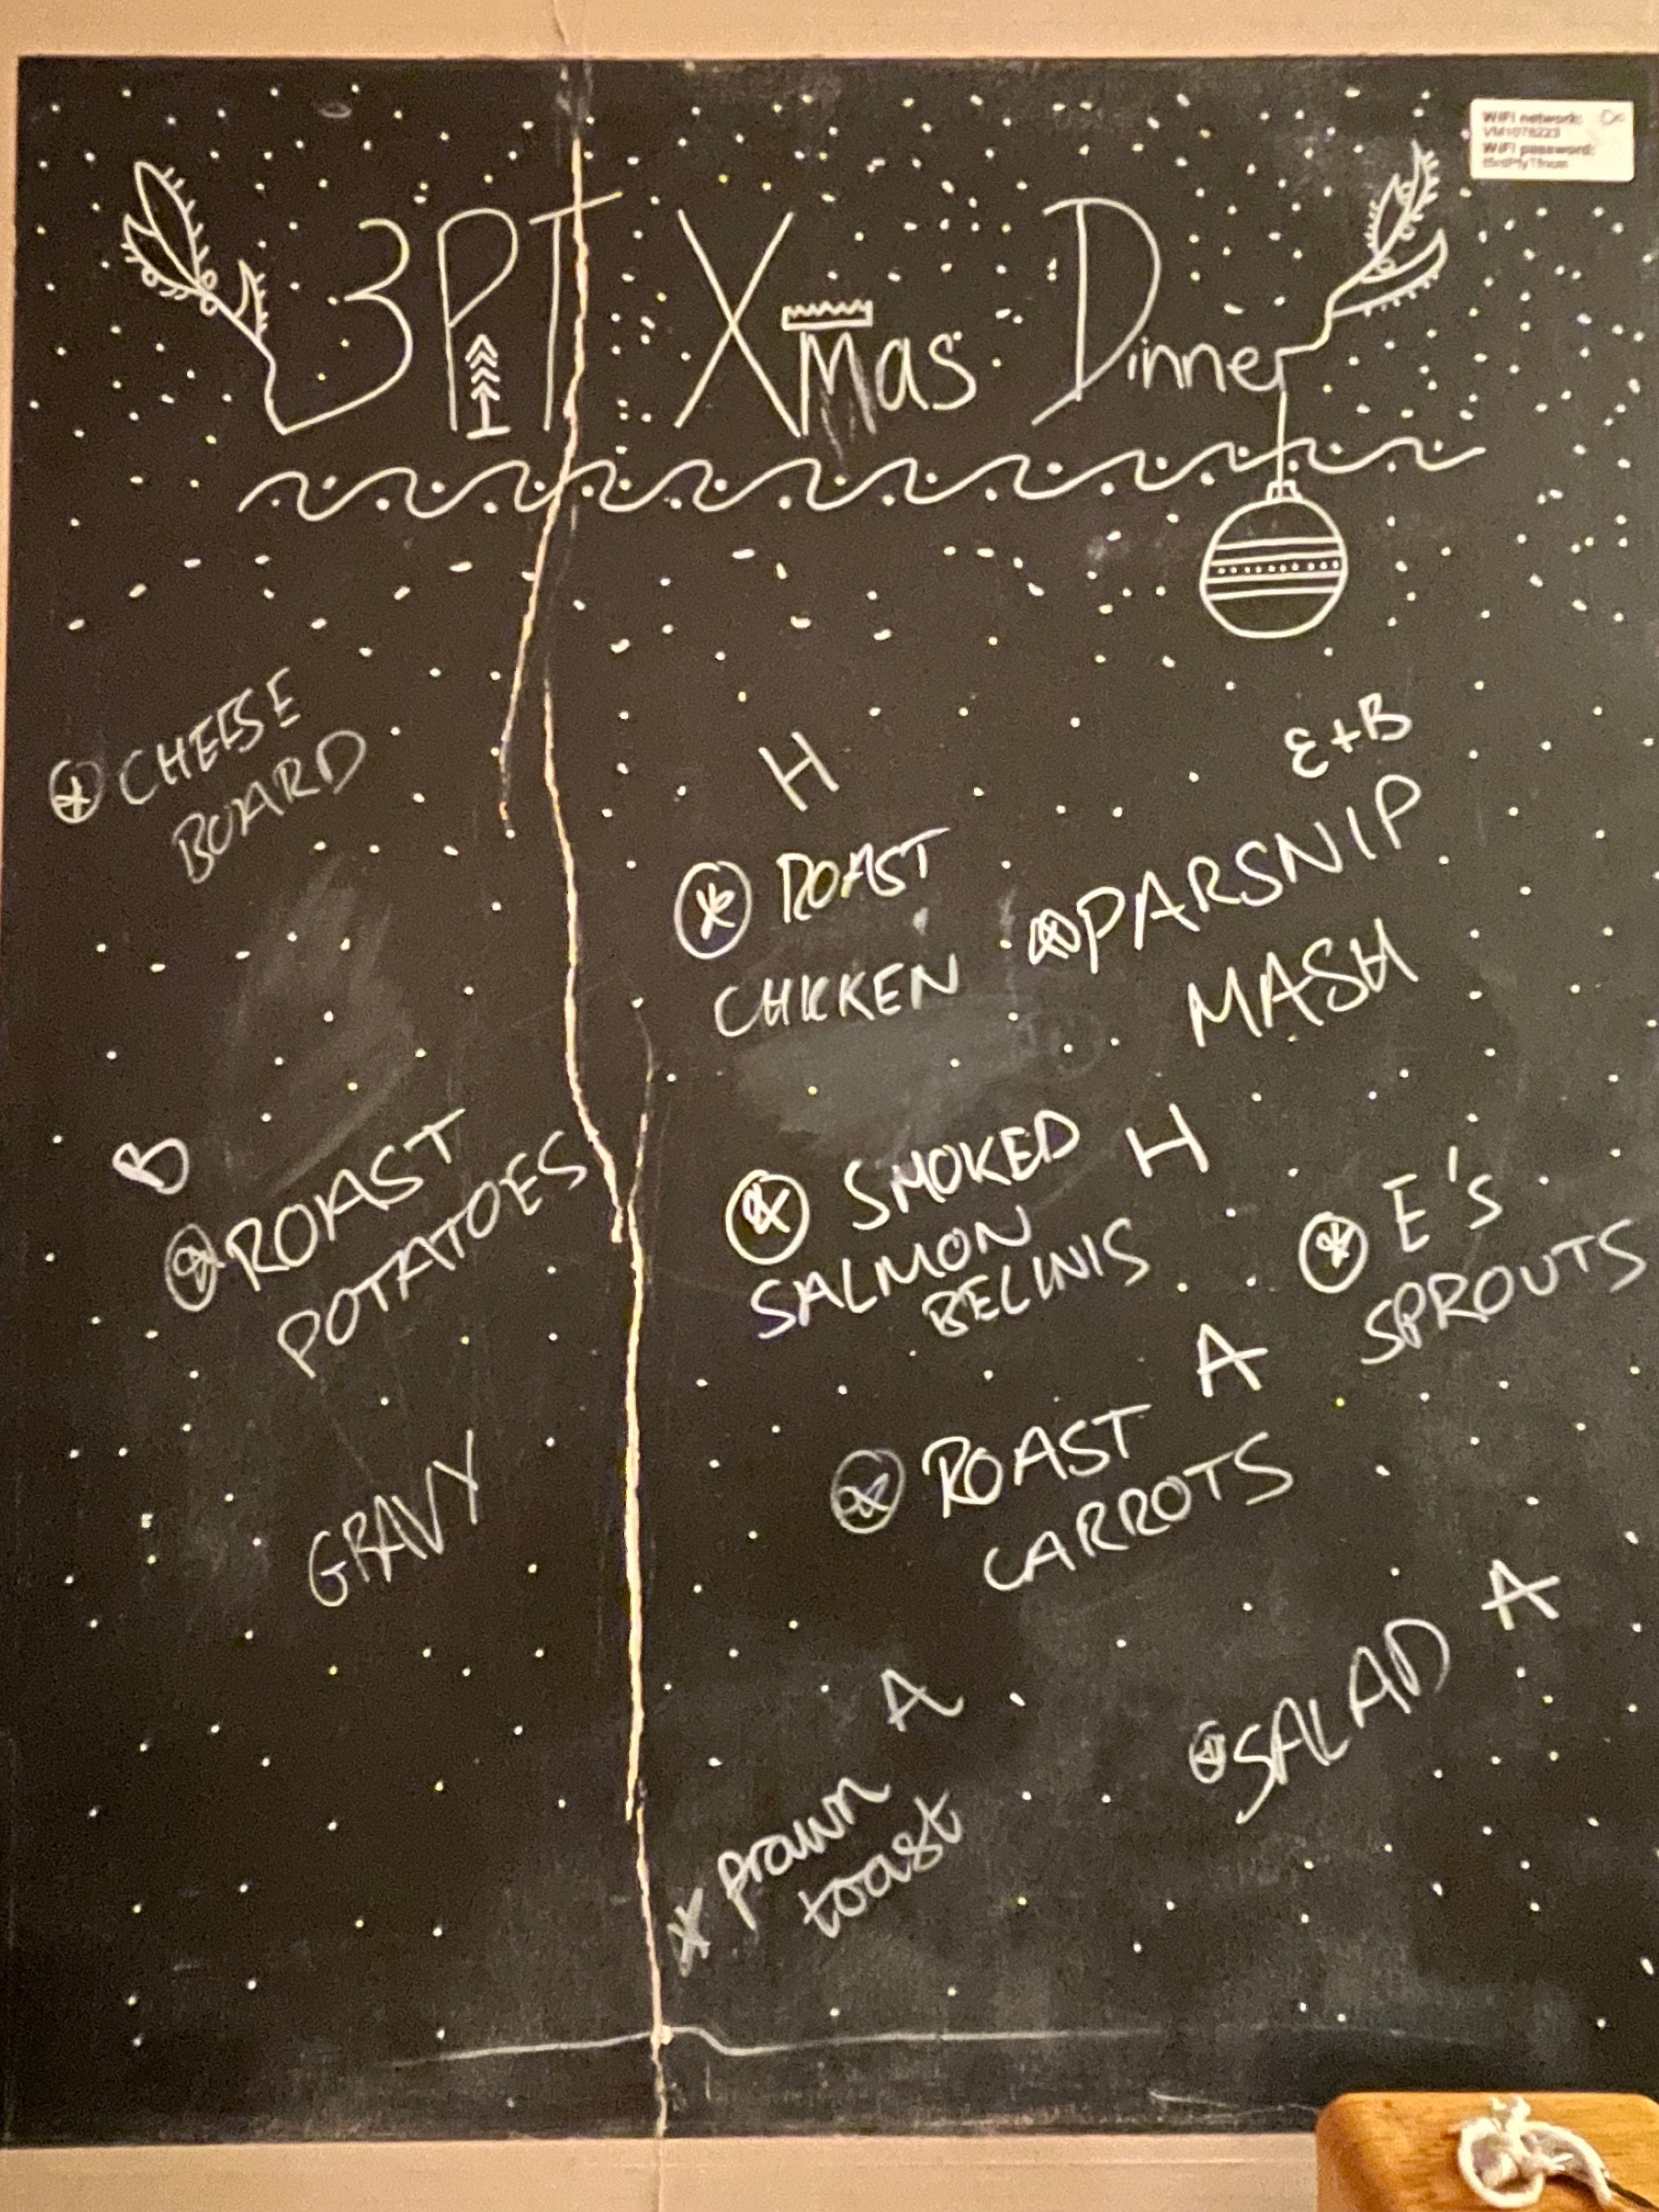 3PT Xmas Dinner
WiFi network:
VM1078223
WiFi password:
CHEESE
BOARD
H
ROAST
CHICKEN
E+B
PARSNIP
MASH
B
ROAST
POTATOES
SMOKED H
SALMON
BELINIS
E's
SPROUTS
A
ROAST
CARROTS
GRAVY
A
SALAD
A
prawn
toast